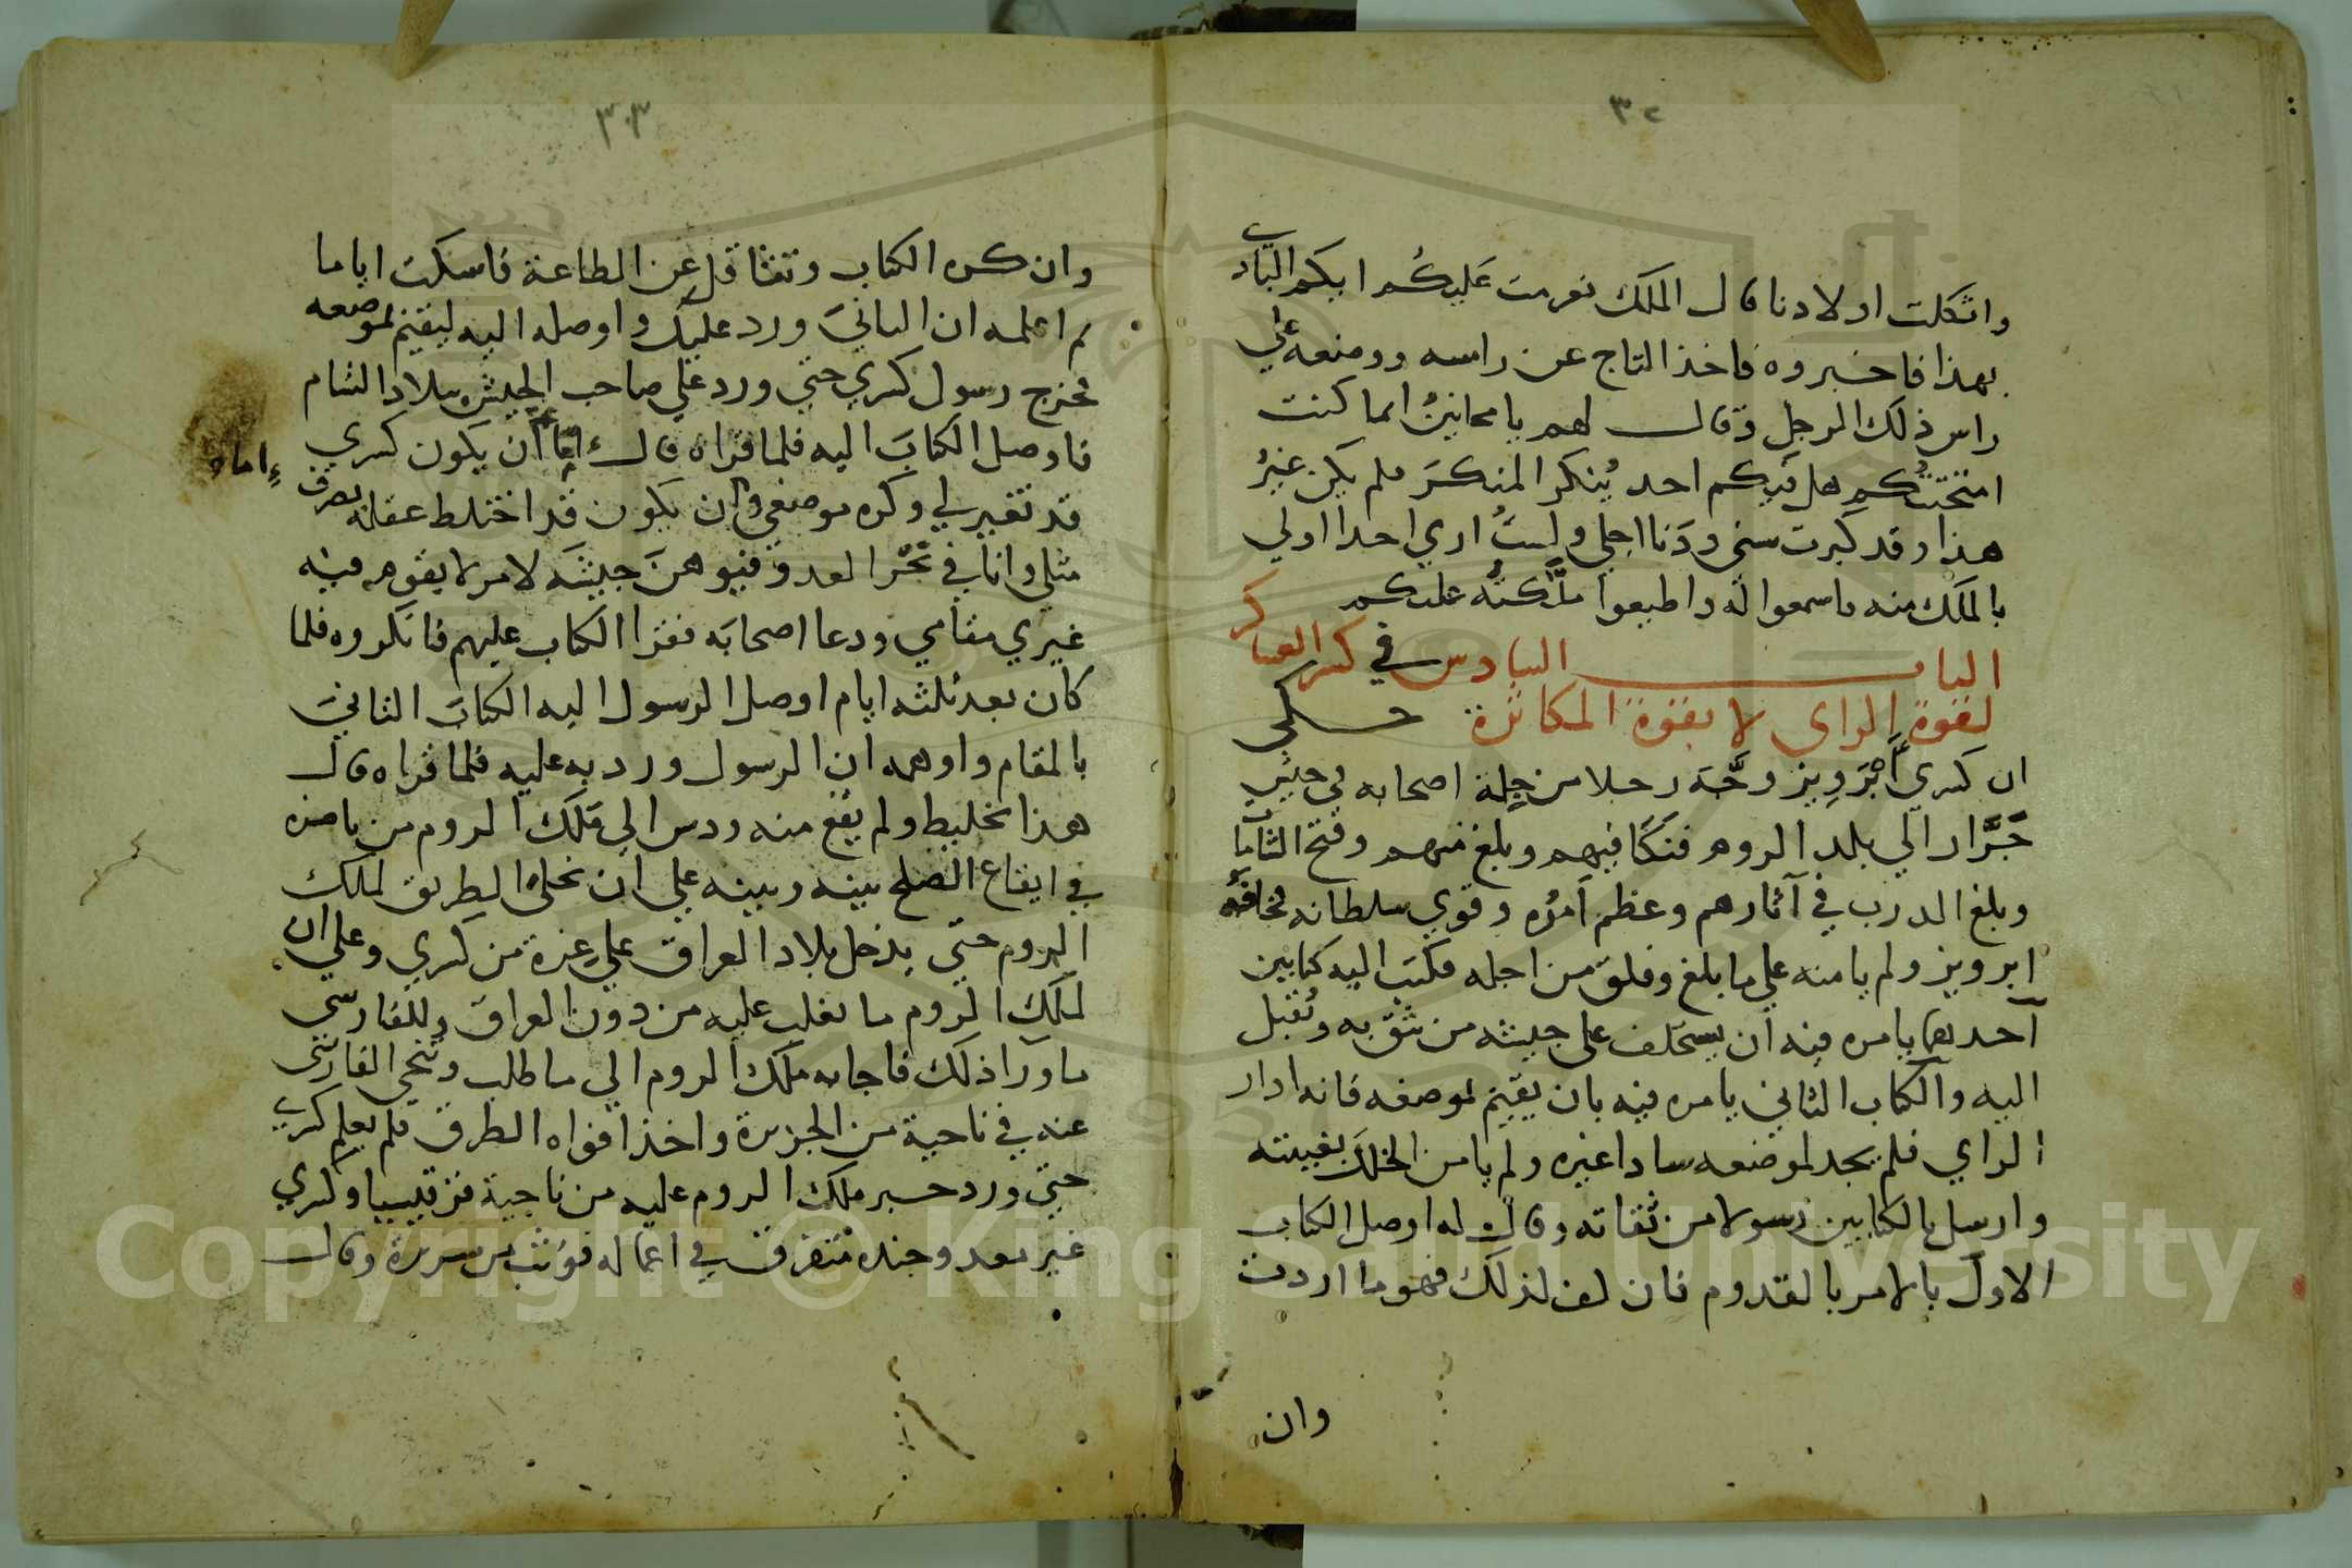 ٣٢
واثكلت اولادنا قال الملك نومت عليكم ايكم
بهذا فاخبروه فاخذ التاج عن راسه ووضعه علي
راس ذلك الرجل وقال لهم يا مجانين انما كنت
امتحنتكم هل فيكم احد ينكر المنكر فلم يكن غير
هذا وقد كبرت سني ودنا اجلي ولست اري احدا اولي
بالملك منه فاسمعوا له واطيعوا ملكته عليكم
الباب السادس في كسر العساكر
لقوة الراي لا بقوة المكاثرة حكي
ان كسري ابرويز وجه رجلا من جلة اصحابه في جيش
جرار الي بلد الروم فنكا فيهم وبلغ منهم وفتح الشامات
وبلغ الدرب في آثارهم وعظم امره وقوي سلطانه فخافه
ابرويز ولم يامنه علي ما بلغ وقلق من اجله فكتب اليه كتابين
احدهما يامره فيه ان يستخلف علي جيشه من يثق به ويقبل
اليه والكتاب الثاني يامره فيه بان يقيم لموضعه فانه ادار
الراي فلم يجد لموضعه سادا غيره ولم يامن الخلل بغيبته
وارسل بالكتابين رسولا من ثقاته وقال له اوصل الكتاب
الاول بالامر بالقدوم فان لذلك فهو ما اردت
وان
٣٣
وان كره الكتاب وتثاقل عن الطاعة فاسكت اياما
ثم اعلمه ان الثاني ورد عليك واوصله اليه ليقيم لموضعه
فخرج رسول كسري حتي ورد علي صاحب الجيش ببلاد الشام
فاوصل الكتاب اليه فلما قراه قال اما ان يكون كسري
اما
قد تغير لي وكره موضعي وان يكون قد اختلط عقله بصرف
مثلي وانا في نحر العدو فيوهن جيشه لامر لا يقوم فيه
غيري مقامي ودعا اصحابه فقرا الكتاب عليهم فانكروه فلما
كان بعد ثلثه ايام اوصل الرسول اليه الكتاب الثاني
بالمقام واوهمه ان الرسول ورد به عليه فلما قراه قال
هذا تخليط ولم يقع منه ودس الي ملك الروم من يامره
في ايقاع الصلح بينه وبينه علي ان يخلي الطريق لملك
الروم حتي يدخل بلاد العراق علي غرة من كسري وعلي ان
لملك الروم ما يغلب عليه من دون العراق وللفارسي
ما ورا ذلك فاجابه ملك الروم الي ما طلب وتنحي الفارسي
عنه في ناحية من الجزيرة واخذ افواه الطرق فلم يعلم كسري
حتي ورد خبر ملك الروم عليه من ناحية قرقيسيا وكسري
غير معد وجنده متفرق في اعماله فوثب من سريره وقال
Copyright © King Saud University